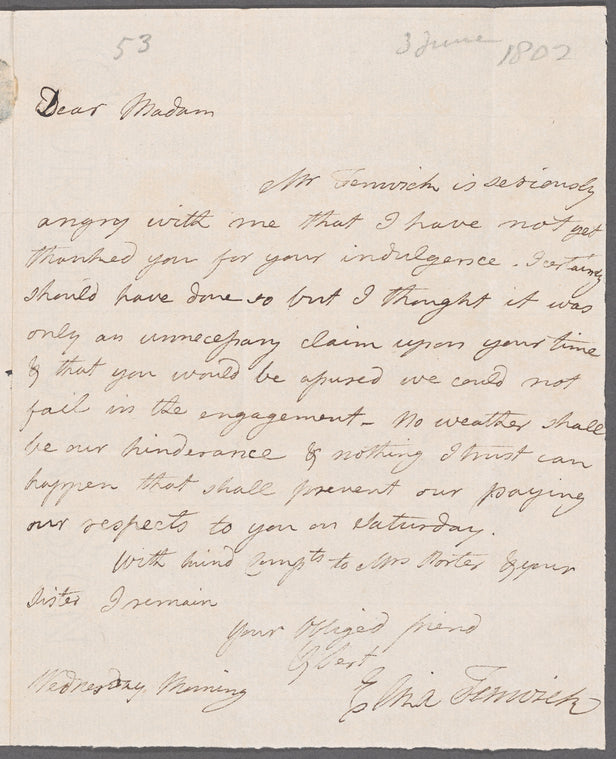 53
3 June 1802
Dear Madam
Mr Fenwick is seriously
angry with me that I have not yet
thanked you for your indulgence. I certainly
should have done so but I thought it was
only an unnecessary claim upon your time
& that you would be assured we could not
fail in the engagement - No weather shall
be our hinderance & nothing I trust can
happen that shall prevent our paying
our respects to you on Saturday.
With kind Compts to Mrs Porter & your
Sister I remain
your obliged friend
Eliza Fenwick
Wednesday Morning